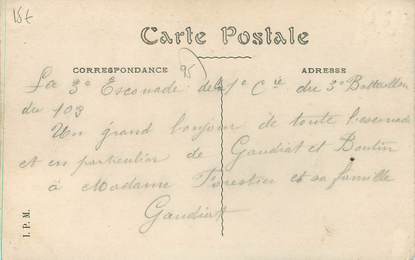 15t
Carte Postale
CORRESPONDANCE
ADRESSE
95
La 3e Escouade de la 1e Cie du 3e Battaillon
du 103
Un grand bonjour de toute l'escouade
et en particulier de Gaudiat et Boutin
à Madame Forestier et sa famille
Gaudiat
I. P. M.